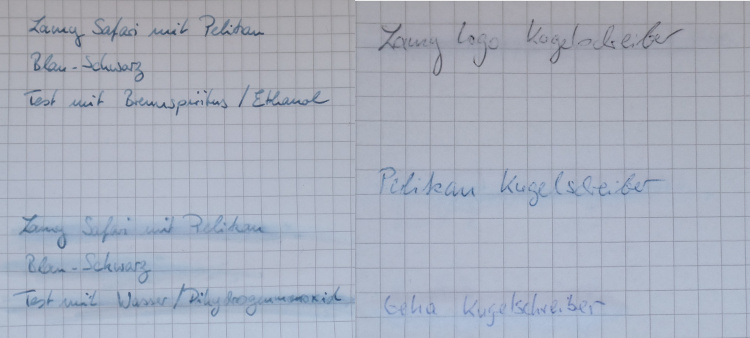 Lamy Safari mit Pelikan
Blau-Schwarz
Test mit Brennspiritus / Ethanol
Lamy Safari mit Pelikan
Blau-Schwarz
Test mit Wasser/Dihydrogenmonoxid
Lamy logo Kugelschreiber
Pelikan Kugelschreiber
Geha Kugelschreiber